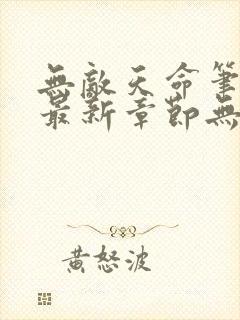 無敵天命筆
最新章節無
黃怒波